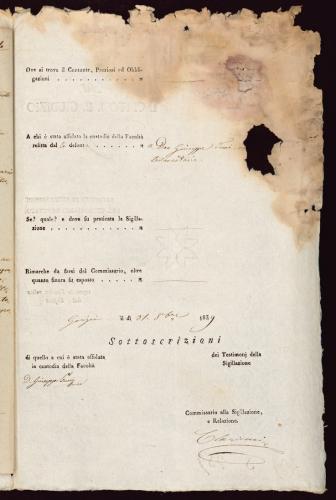 Ove si trova il Contante, Preziosi ed Obbli-
gazioni . . . . . . . . . . . »
A chi è stata affidata la custodia delle Facoltà
relitta dal defonto . . . . . . . » a Don Giuseppe
Se? quale? e dove fu praticata la Sigilla-
zione . . . . . . . . . . . »
Rimarche da farsi dal Commissario, oltre
quanto finora fu esposto . . . . . »
Gorizia li di 31. 8bre 1839
Sottoscrizioni
di quello a cui è stata affidata
in custodia della Facoltà
dei Testimonj della
Sigillazione
D. Giuseppe
Commissario alla Sigillazione,
e Relazione.